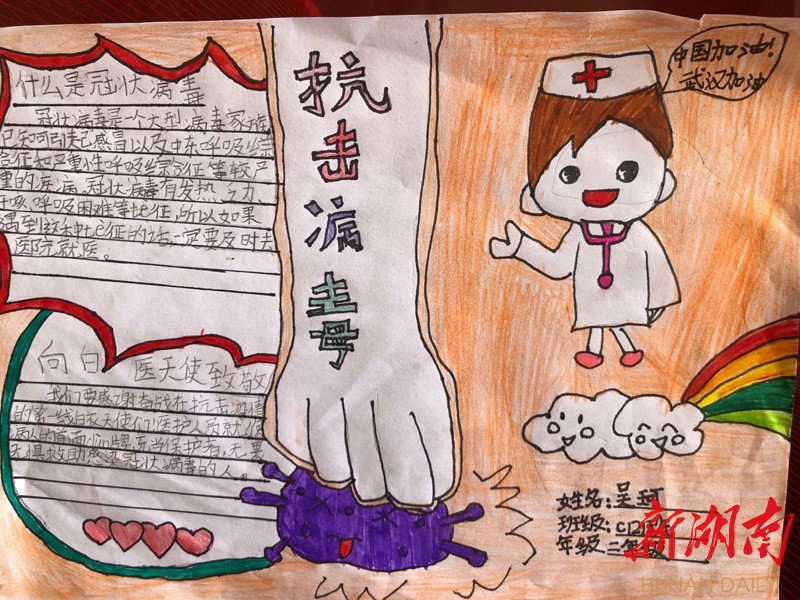 什么是冠状病毒
冠状病毒是一个大型病毒家族
已知可引起感冒以及中东呼吸综
合征和严重急性呼吸综合征等较严
重的疾病.冠状病毒有发热、乏力、
干咳、呼吸困难等症征,所以如果
遇到这种症征的话,一定要及时去
医院就医。
向白 医天使致敬
我们要感谢奋战在抗击
的第一线白衣天使们医护人员就
病人的
无惧救助感染冠状病毒的人。
抗击病毒
中国加油!
武汉加油
姓名:吴珂
班级:
年级 二年级
新湖南
HUNAN DAILY